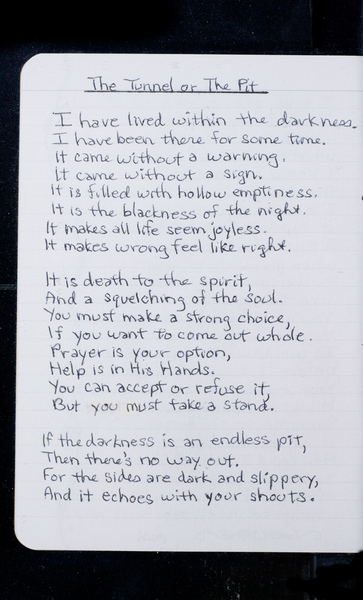 The Tunnel or The Pit
I have lived within the darkness.
I have been there for some time.
It came without a warning.
It came without a sign.
It is filled with hollow emptiness.
It is the blackness of the night.
It makes all life seem joyless.
It makes wrong feel like right.
It is death to the spirit,
And a squelching of the soul.
You must make a strong choice,
If you want to come out whole.
Prayer is your option,
Help is in His Hands.
You can accept or refuse it,
But you must take a stand.
If the darkness is an endless pit,
Then there's no way out.
For the sides are dark and slippery,
And it echoes with your shouts.